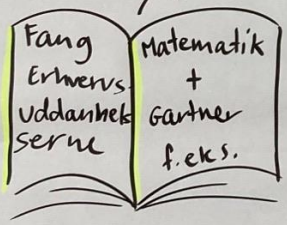 Fang
Erhvervs-
uddannels
serne
Matematik
+
Gartner
f.eks.